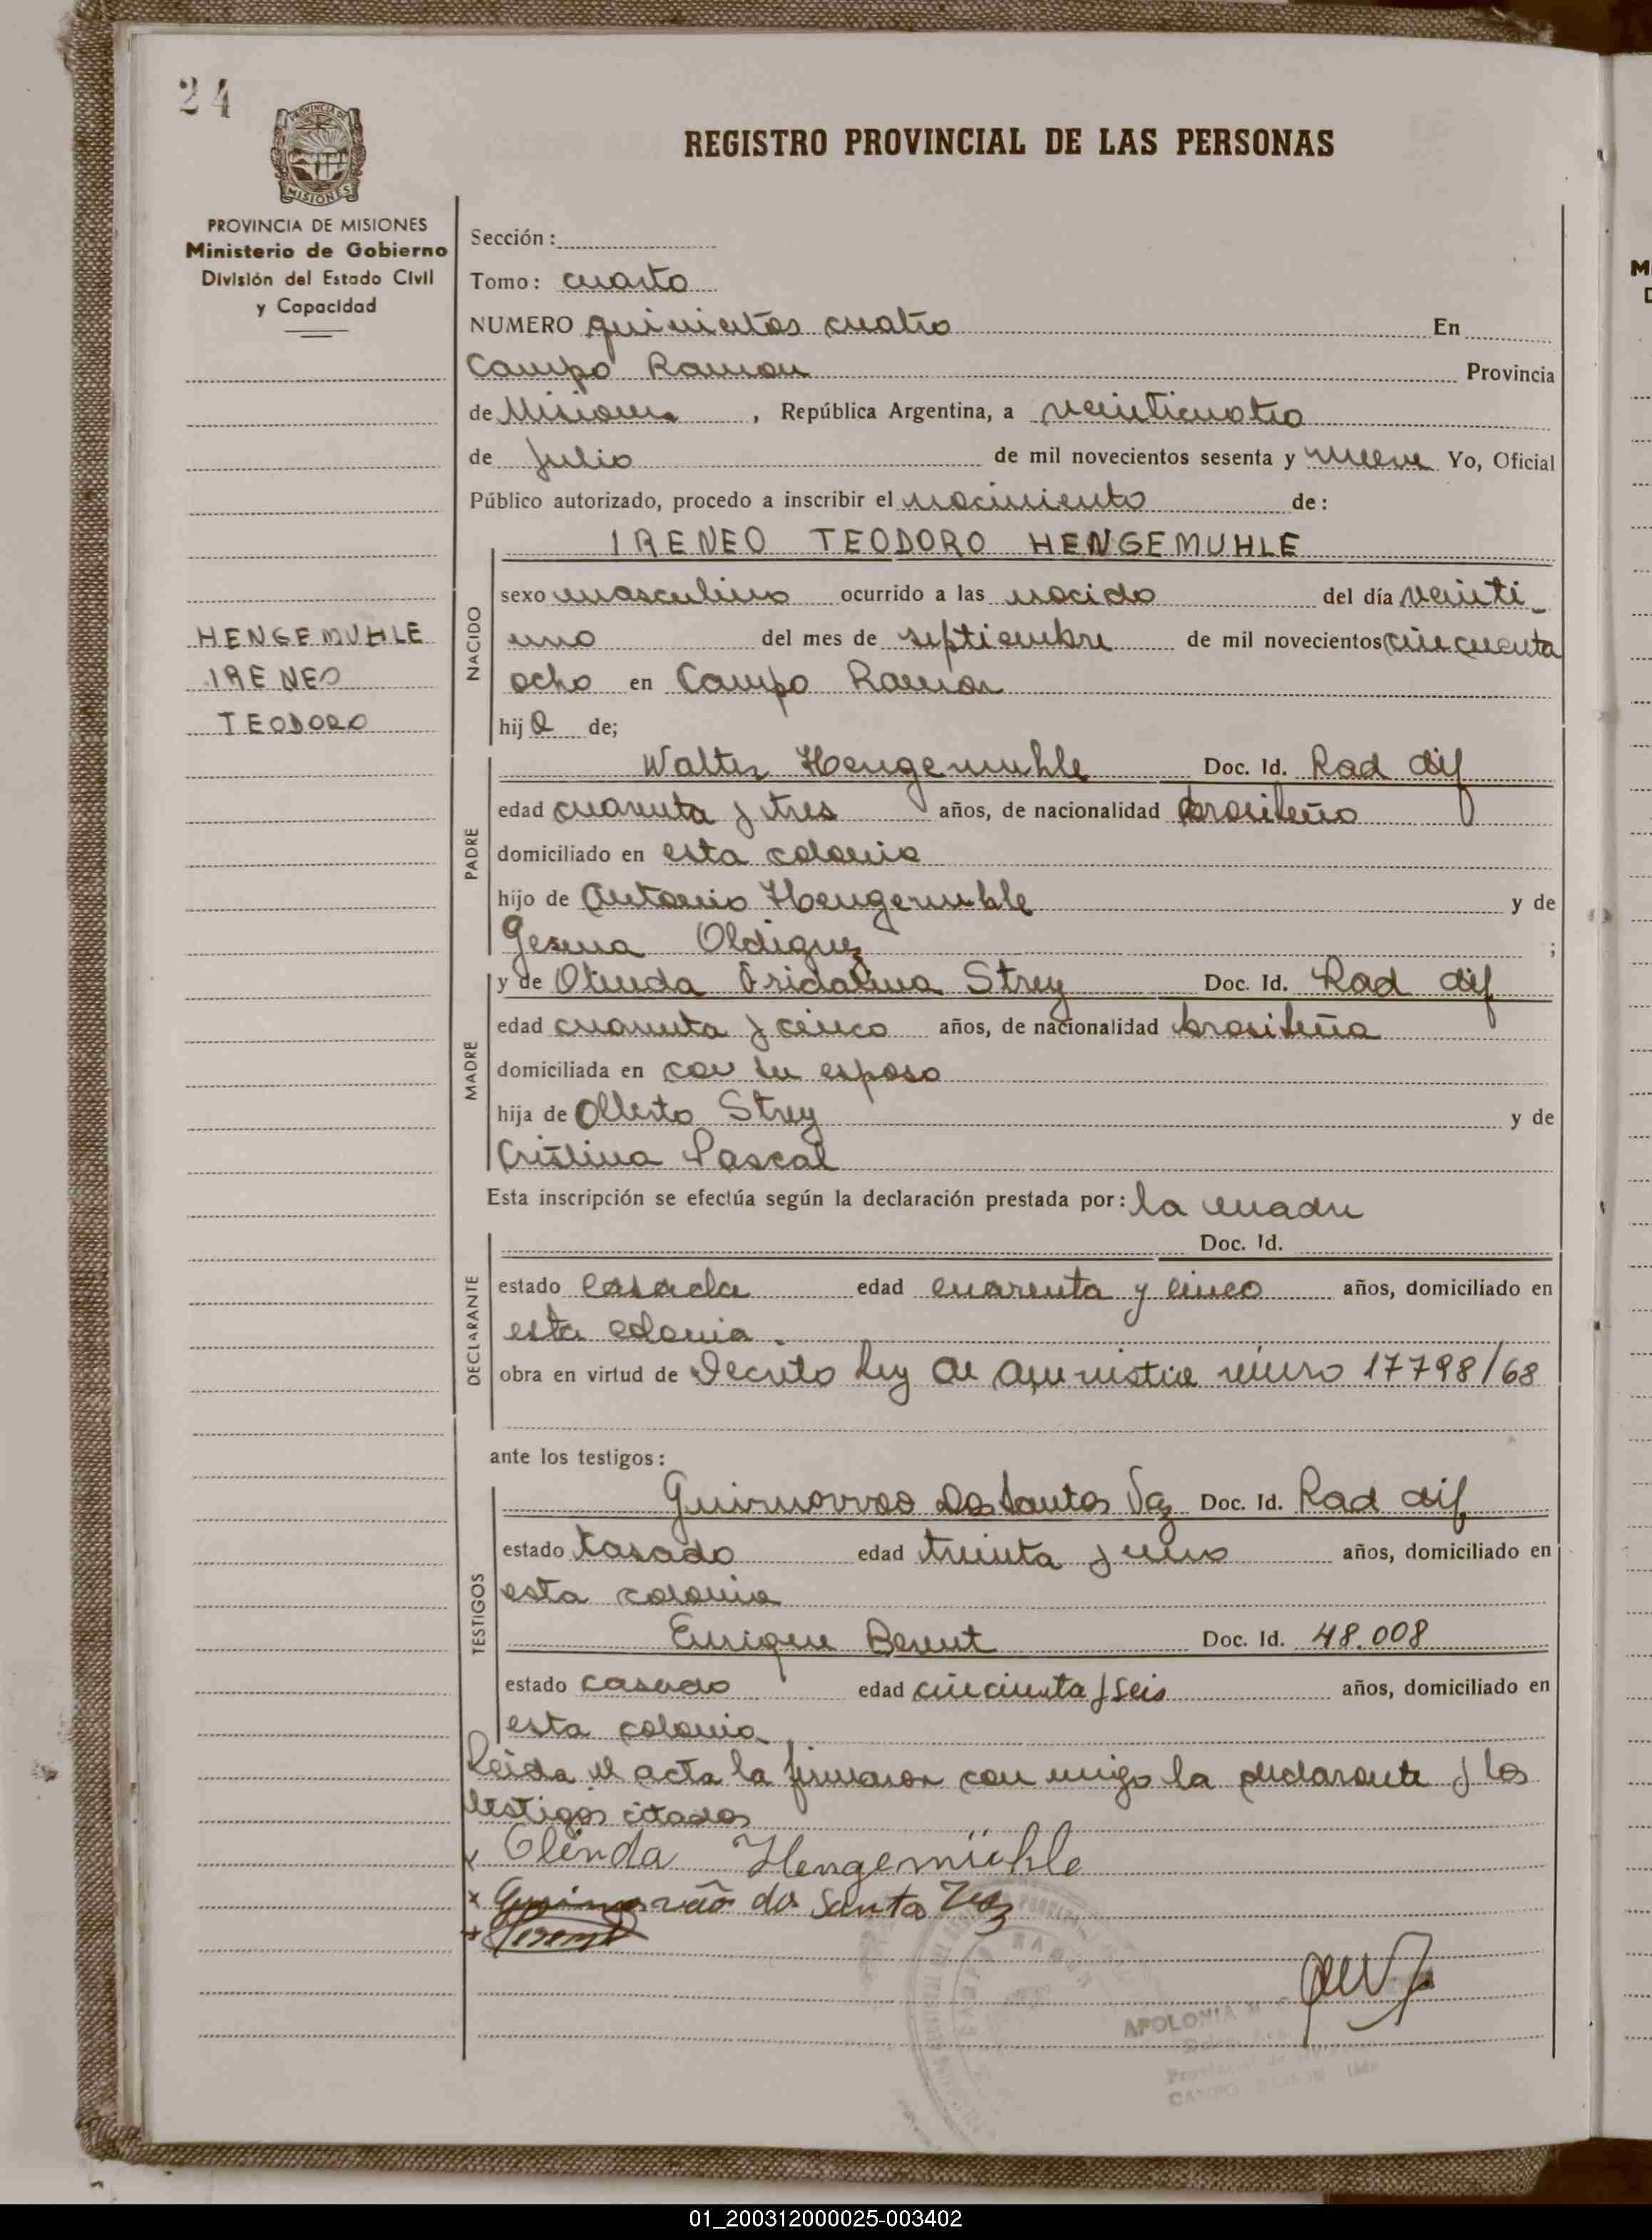 24
PROVINCIA DE
MISIONES
PROVINCIA DE MISIONES
Ministerio de Gobierno
División del Estado Civil
y Capacidad
REGISTRO PROVINCIAL DE LAS PERSONAS
Sección:
Tomo: cuarto
NUMERO quinientos cuatro En
Campo Ramon Provincia
de Misiones, República Argentina, a veinticuatro
de Julio de mil novecientos sesenta y nueve Yo, Oficial
Público autorizado, procedo a inscribir el nacimiento de:
IRENEO TEODORO HENGEMUHLE
NACIDO
sexo masculino ocurrido a las nacido del día veinti-
uno del mes de septiembre de mil novecientos cincuenta
ocho en Campo Ramon
hijo de;
HENGEMUHLE
IRENEO
TEODORO
PADRE
Walter Hengemuhle Doc. Id. Rad dif
edad cuarenta y tres años, de nacionalidad brasileño
domiciliado en esta colonia
hijo de Antonio Hengemuhle y de
Gesina ;
MADRE
y de Olinda Fridalina Strey Doc. Id. Rad dif
edad cuarenta y cinco años, de nacionalidad brasileña
domiciliada en con su esposo
hija de Alberto Strey y de
Cristina Pascal
Esta inscripción se efectúa según la declaración prestada por: la madre
DECLARANTE
Doc. Id.
estado casada edad cuarenta y cinco años, domiciliado en
esta colonia.
obra en virtud de Decreto Ley de Amnistia número 17798/68
ante los testigos:
TESTIGOS
Dos Santos Vaz Doc. Id. Rad dif
estado casado edad treinta y uno años, domiciliado en
esta colonia
Enrique Berent Doc. Id. 48.008
estado casado edad cincuenta y seis años, domiciliado en
esta colonia
Leida el acta la firmaron con migo la declarante y los
testigos citados
x Olinda Hengemühle
x dos Santos Vaz
x
APOLONIA M.
CAMPO RAMON
01_200312000025-003402